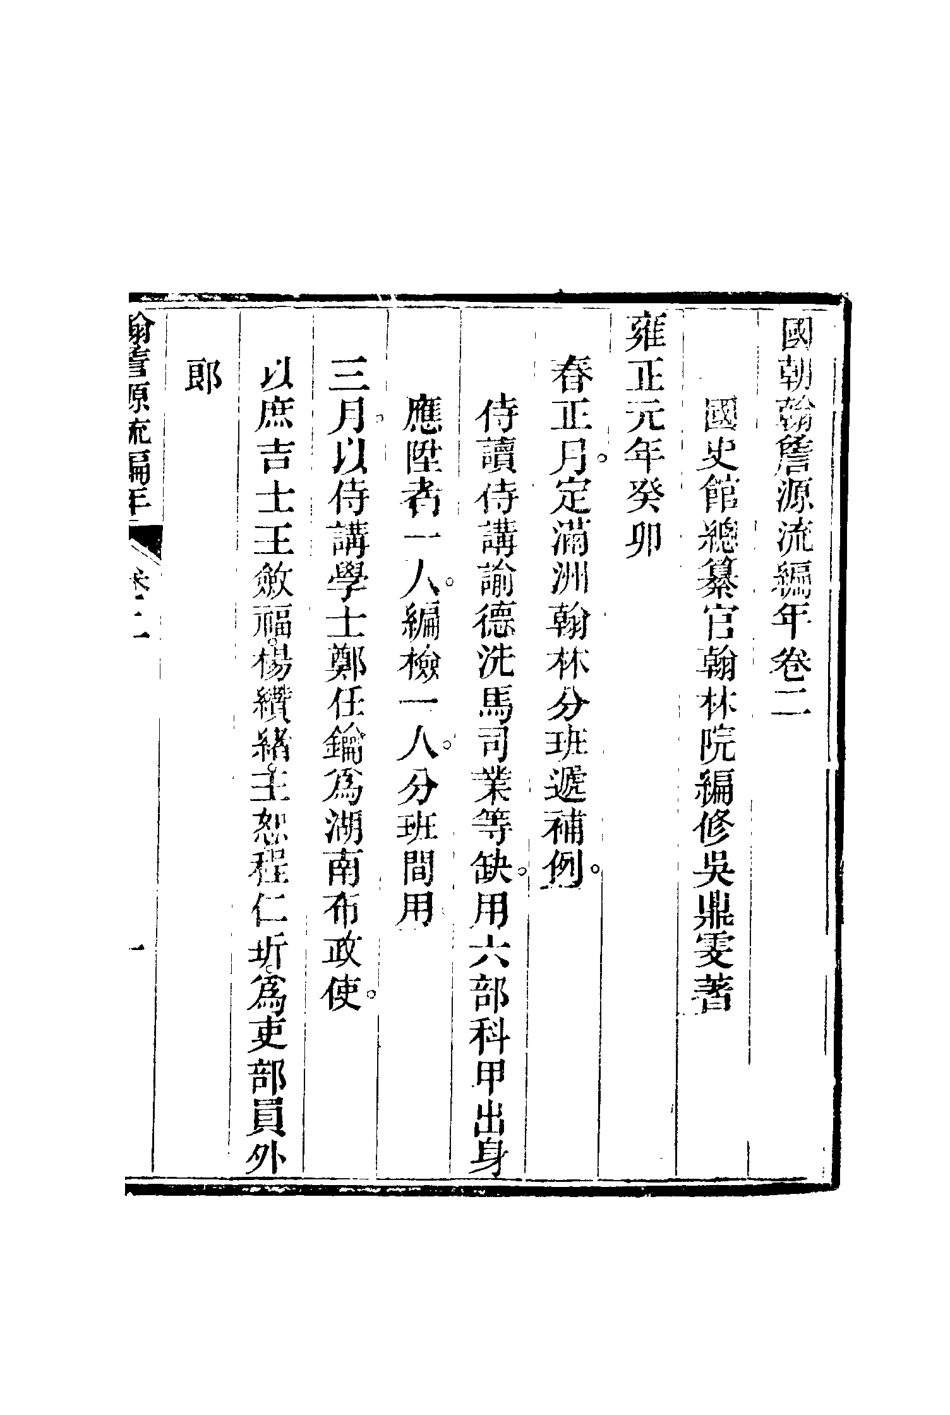 國朝翰詹源流編年卷二
國史館總纂官翰林院編修吳鼎雯著
雍正元年癸卯
春正月。定滿洲翰林分班遞補例。
侍讀侍講諭德洗馬司業等缺。用六部科甲出身
應陞者一人。編檢一人。分班間用
三月。以侍講學士鄭任鑰爲湖南布政使。
以庶吉士王斂福。楊纘緒。王恕程仁圻。爲吏部員外
郎
翰詹源流編年
卷二
一